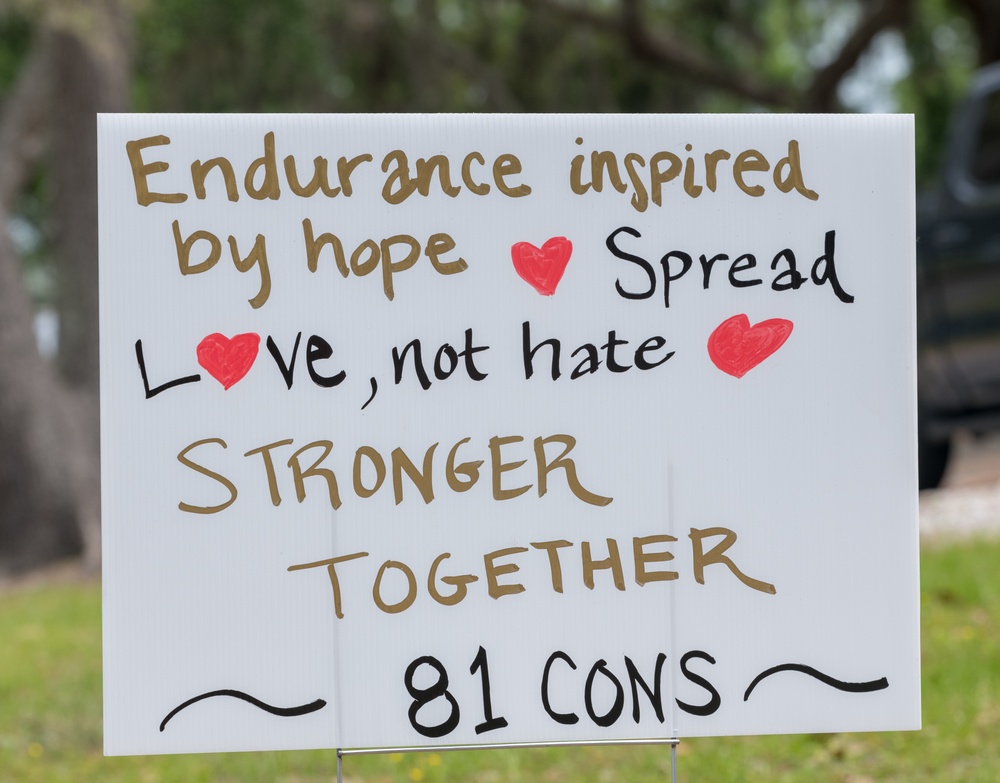 Endurance inspired
by hope ❤ Spread
L❤ve, not hate ❤
STRONGER
TOGETHER
~ 81 CONS ~